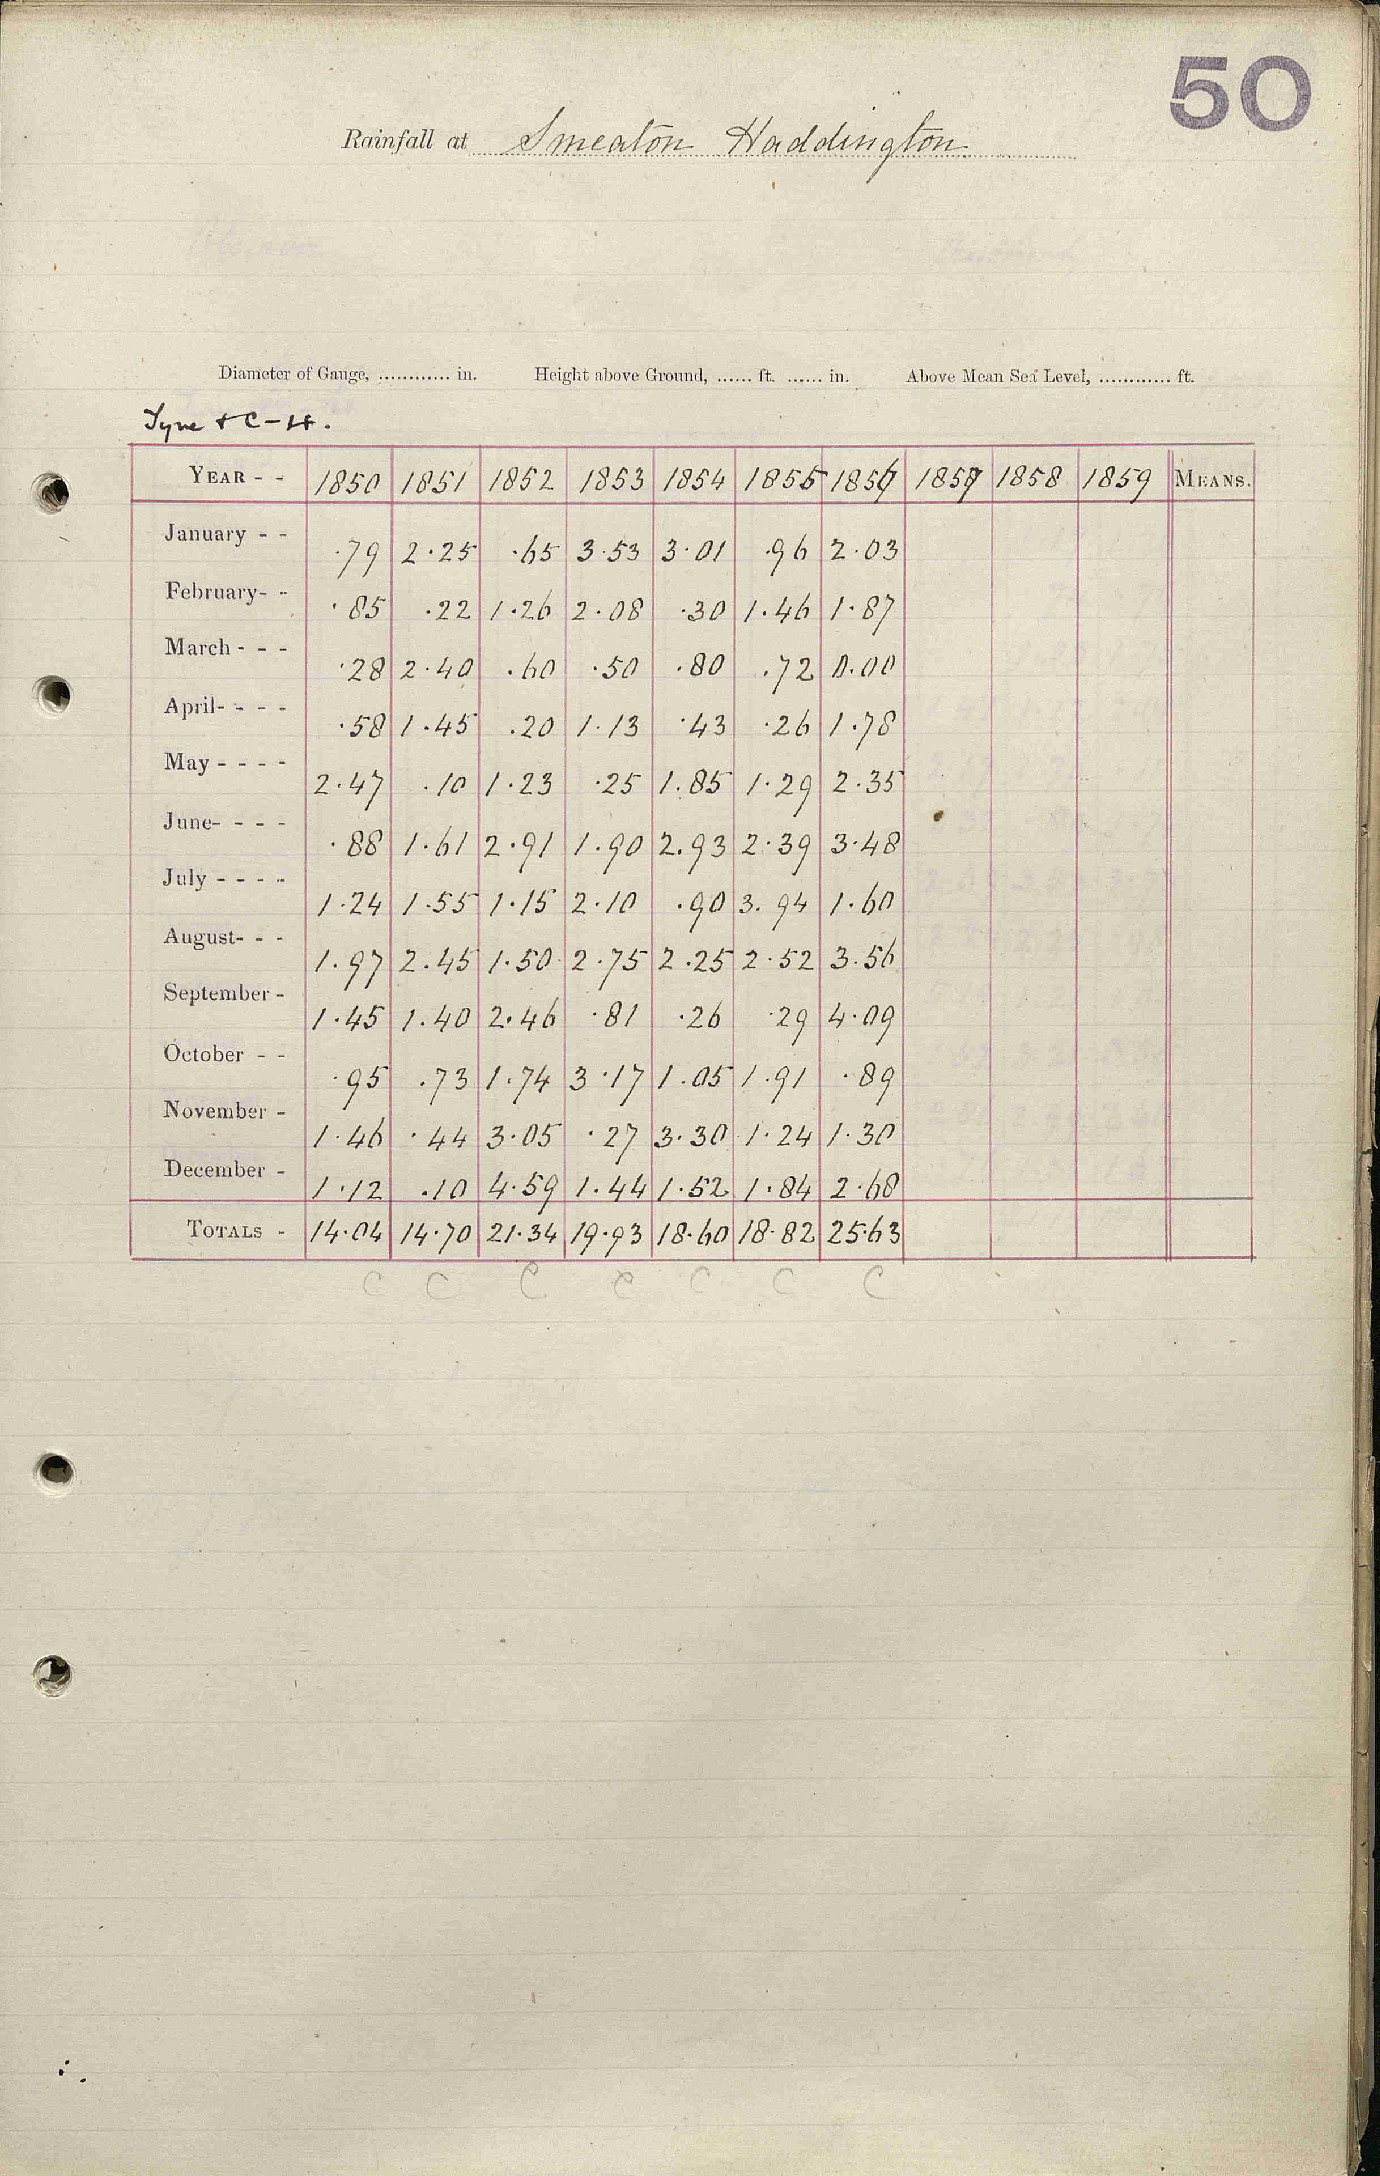 50
Rainfall at Smeaton Haddington
Diameter of Gauge, ............ in. Height above Ground, ...... ft. ...... in. Above Mean Sea Level, ............ ft.
Tyne & C-H.
YEAR - - 1850 1851 1852 1853 1854 1855 1856 1857 1858 1859 MEANS.
January - - ·79 2·25 ·65 3·53 3·01 ·96 2·03
February- - ·85 ·22 1·26 2·08 ·30 1·46 1·87
March - - - ·28 2·40 ·60 ·50 ·80 ·72 0.00
April- - - - ·58 1·45 ·20 1·13 ·43 ·26 1·78
May - - - - 2·47 ·10 1·23 ·25 1·85 1·29 2·35
June- - - - ·88 1·61 2·91 1·90 2.93 2·39 3·48
July - - - - 1·24 1·55 1·15 2·10 ·90 3.94 1·60
August- - - 1·97 2·45 1·50 2·75 2·25 2·52 3·56
September - 1·45 1·40 2·46 ·81 ·26 ·29 4·09
October - - ·95 ·73 1·74 3·17 1·05 1·91 ·89
November - 1·46 ·44 3·05 ·27 3·30 1·24 1·30
December - 1·12 ·10 4·59 1·44 1·52 1·84 2·68
TOTALS - 14·04 14·70 21·34 19·93 18·60 18·82 25·63
C C C C C C C